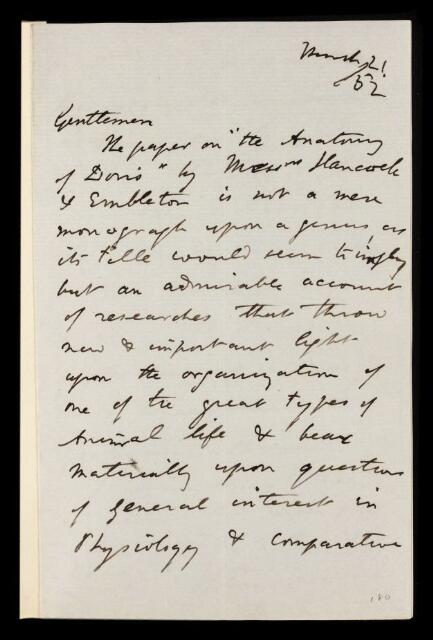 March 21
/52
Gentlemen
The paper on "the Anatomy
of Doris" by Messrs Hancock
& Embleton is not a mere
monograph upon a genus as
its title would seem to imply
but an admirable account
of researches that throw
new & important light
upon the organization of
one of the great types of
Animal life & bear
materially upon questions
of general interest in
Physiology & comparative
180